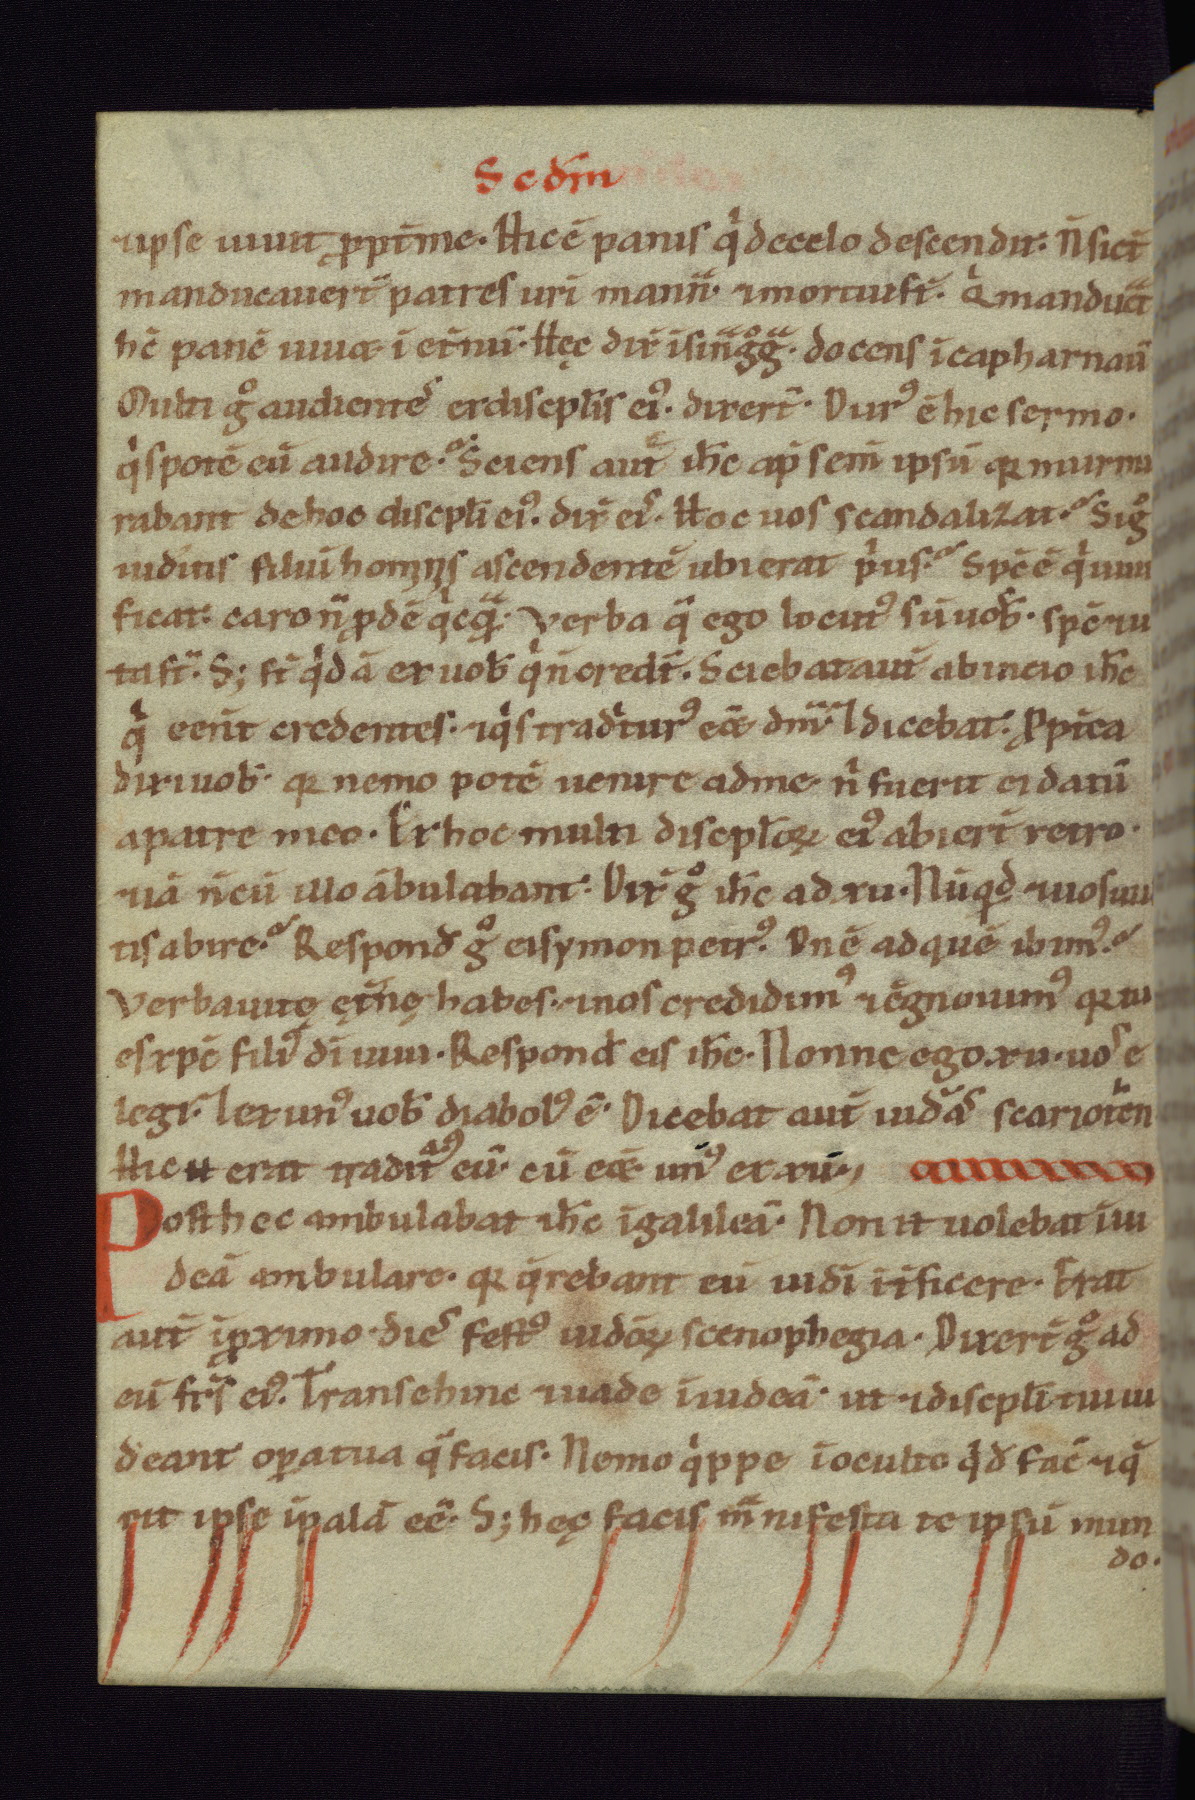 Scdm̄
⁊ ipse uiuit ꝓpt̄ me. Hic ē panis q̇ de celo descendit. N̄ sic̄
manducauer̄t patres ur̄i mann̄. ⁊ mortui st̄. Q̇ manduc̄t
hc̄ panē uiuet ī et̄nū. Hęc dix̄ ī sinḡg̊ḡ. docens ī capharnaū
Multi g̊ audientes ex discipl̄is ei᷒. dixer̄t. Dur᷒ ē hic sermo.
q̇s potē eū audire. Sciens aūt ih̄c ap̄ sem̄ ipsū qꝛ murmu
rabant de hoc discpl̄i ei᷒. dix̄ eis. Hoc uos scandalizat. Si g̊
uiditis filiū hominis ascendentē ubi erat p̄us. Sp̄c ē q̇ uiui
ficat. caro n̄ ꝓdē qċq̄. Verba q̄ ego locut᷒ sū uob̄. sp̄c ⁊ ui
ta st̄. S; st̄ q̇dā ex uob̄ q̇ n̄ credt̄. Sciebat aūt ab inicio ih̄c
q̇ eēnt credentes. ⁊ q̇s tradit̄ur᷒ eēt dn̄m. ⁊ dicebat. Ꝓpt̄ea
dixi uob̄. qꝛ nemo potē uenire ad me. n̄ fuerit ei datū
a patre meo. Ex hoc multi discipl̄oꝝ ei᷒ abiert̄ retro.
⁊ iā n̄ cū illo ābulabant. Dix̄ g̊ ih̄c ad xii. Nūqd̄ ⁊ uos uul
tis abire. Respond̄ g̊ ei symon petr᷒. Dn̄e ad quē ibim᷒.
Verba uitę ęt̄nę habes. ⁊ nos credidim᷒ ⁊ c̄gnouim᷒ qꝛ tu
es xp̄c fili᷒ dī uiui. Respond̄ eis ih̄c. Nonne ego .xii. uos e
legi. ⁊ ex un᷒ uob̄ diabol᷒ ē. Dicebat aūt iudā scariotēn
Hic .n. erat tradit̄ur᷒ eū. cū eēt un᷒ ex xii.
Post hec ambulabat ih̄c ī galileā. Non .n. uolebat ī iu
deā ambulare. qꝛ q̄rebant eū iudī īt̄ficere. Erat
aūt ī ꝓximo dies fest᷒ iudēoꝝ scenophegia. Dixert̄ g̊ ad
eū frs̄ ei᷒. Transi hinc ⁊ uade ī iudeā. ut ⁊ discipl̄i tui ui
deant oꝑa tua q̄ facis. Nemo q̇ppe ī oculto q̇d fac̄ ⁊ q̄
rit ipse ī palā eē. S; hęc facis manifesta te ipsū mun
do.